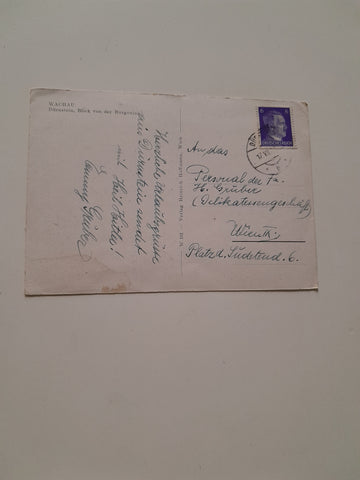 WACHAU
Dürnstein, Blick von der Burgruine
Herzliche Urlaubsgrüsse
aus Dürnstein sendet
mit Heil Hitler!
W 111 Verlag Heinrich Hoffmann, Wien
6 6
DEUTSCHES REICH
An das
Personal der Fa.
H. Gruber
(Delikatessengeschäft)
Platz d. Sudetend. 6.